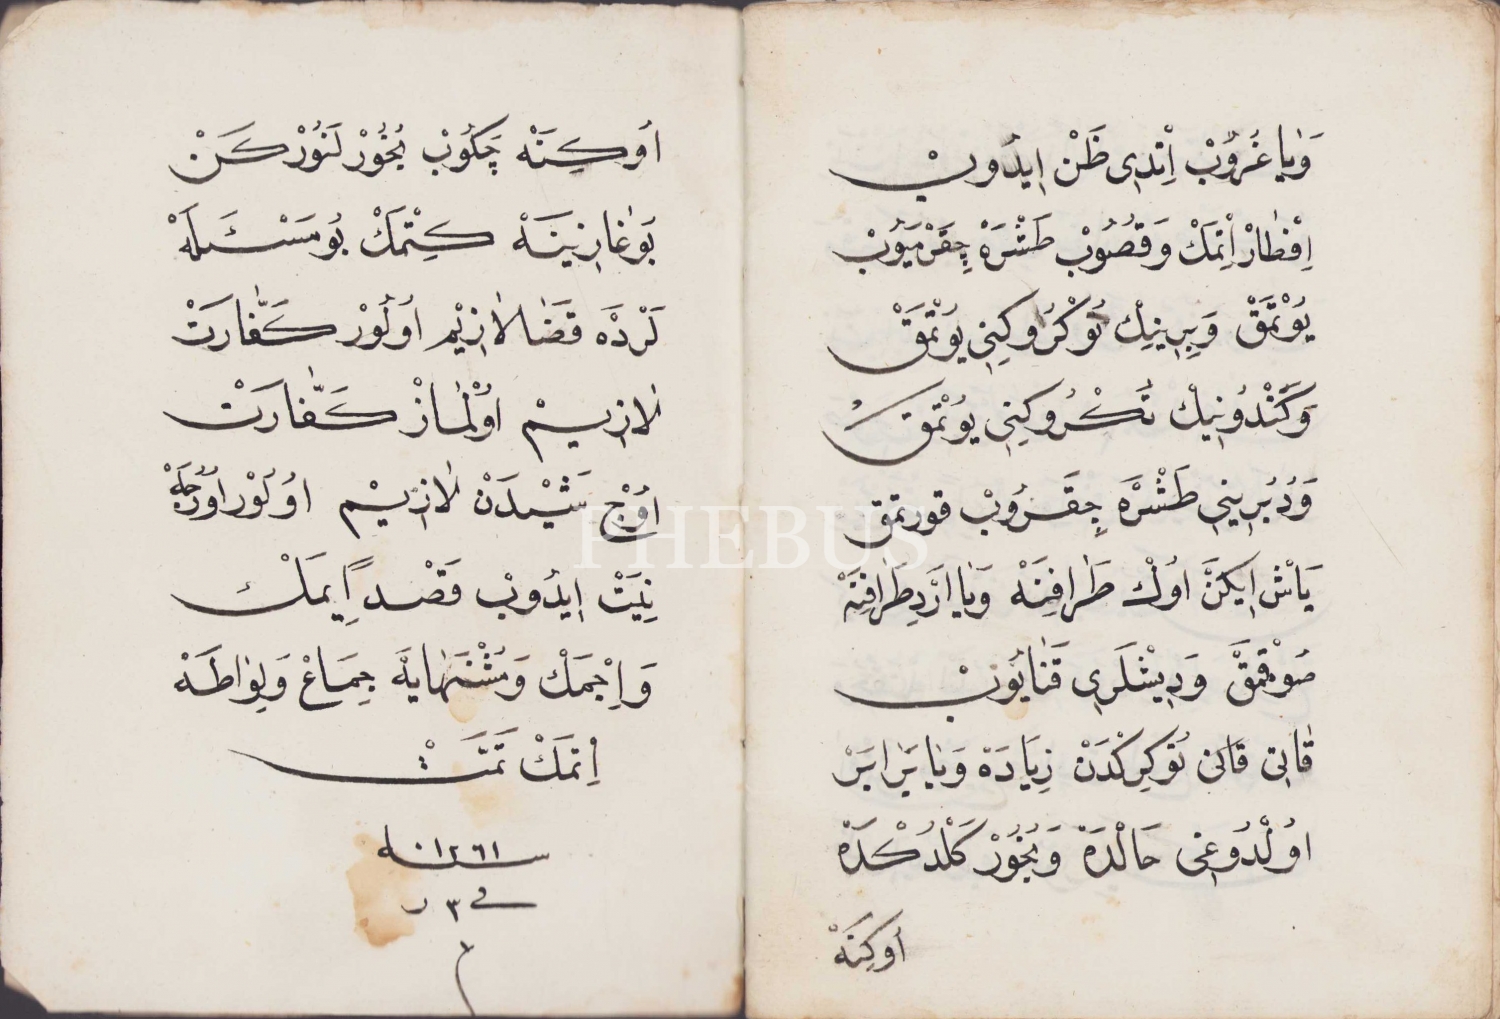 وَيَا غُرُوبْ اِتْدِى ظَنْ اِيدُوبْ
اِفْطَارْ اِتْمَكْ وَقُصُوبْ طَشْرَهْ چِقَرْمَيُوبْ
يُوتْمَقْ وَبِرِينِكْ تُوكْرُوكِنِى يُوتْمَقْ
وَكَنْدُونِيكْ تُكْرُوكِنِى يُوتْمَقْ
وَدُبُرِينِى طَشْرَهْ چِقَرُوبْ قورتمق
يَاشْ اِيكَنْ اوُكْ طَرَافِنَهْ وَيَا ارْدِ طَرَافِنَهْ
صُوقْمَقْ وَدِيشْلَرِى قَنَايُوبْ
قَاتِى قَانِى تُوكِرِكْدَنْ زِيَادَهْ وَيَا بَرَابَرْ
اوُلْدُوغِى حَالْدَهْ وَبُخُورْ كَلْدُكْدَهْ
اُوكِنَهْ
اُوكِنَهْ چَكُوبْ بُخُورْ لَنُورْكَنْ
بُوغَازِينَهْ كِتْمَكْ بُو مَسْئَلَهْ
لَرْدَهْ قَضَا لَازِيمْ اُولُورْ كَفَّارَتْ
لَازِيمْ اوُلْمَازْ كَفَّارَتْ
اوُچْ شَيْدَنْ لَازِيمْ اوُلُورْ اوُرُجَهْ
نِيَتْ اِيدُوبْ قَصْدًا يِمَكْ
وَاِچْمَكْ وَمُشْتَهَايَهْ جِمَاعْ وَلِوَاطَهْ
اِتْمَكْ تَمَتْ
سنه ١٢٦١
فى ٣ ر
م
PHEBUS